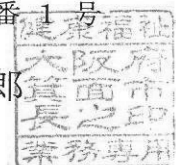 番 1 号
郎
健康福祉
大阪府
箕面市
長之印
業務専用